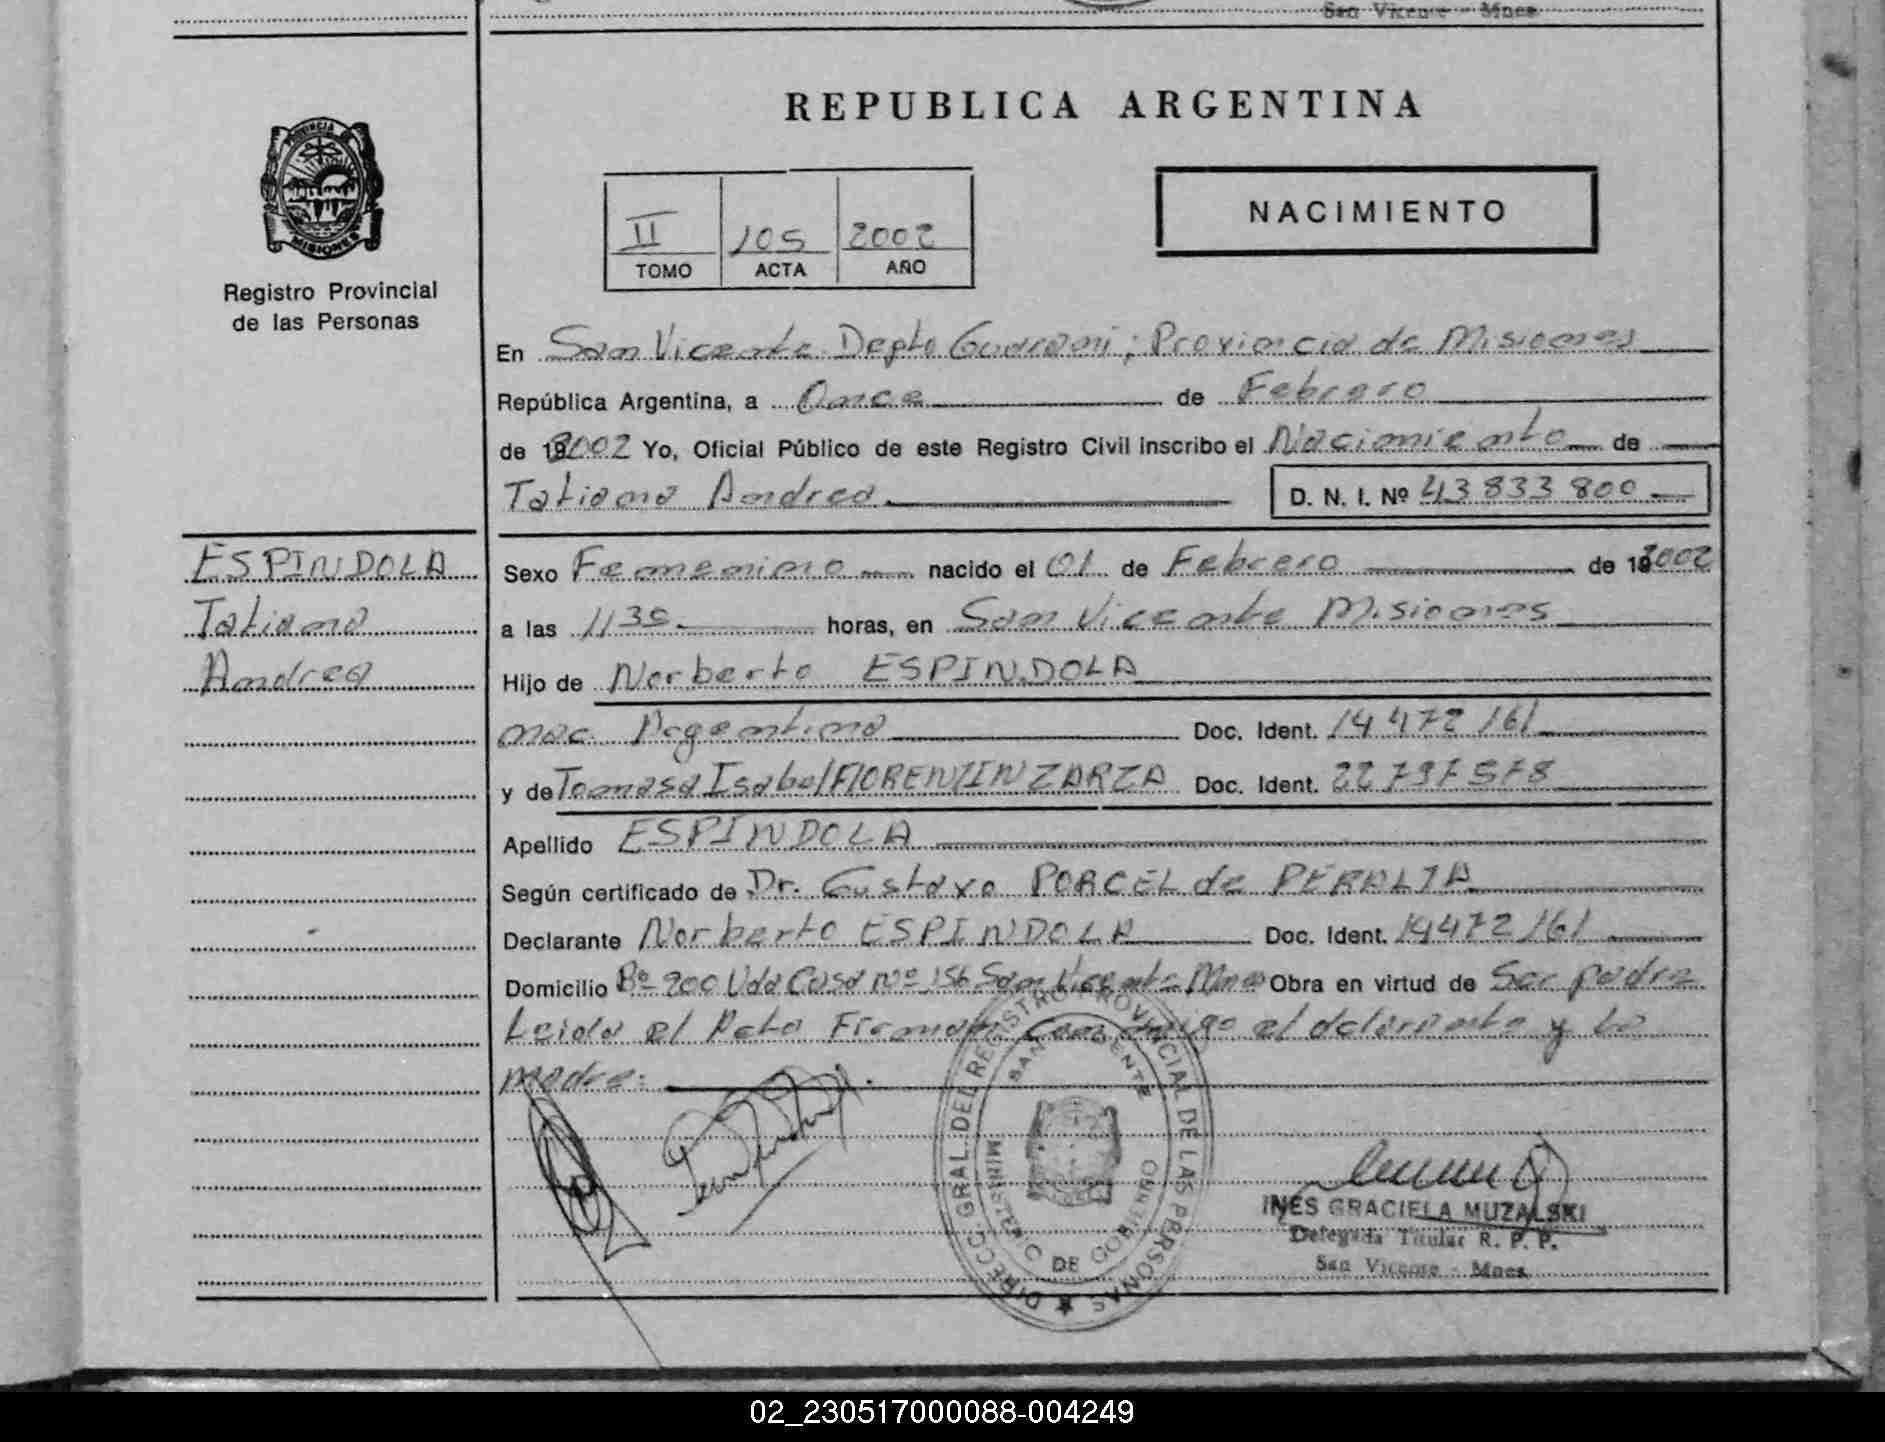 San Vicente - Mnes
REPUBLICA ARGENTINA
PROVINCIA DE
MISIONES
Registro Provincial
de las Personas
II 105 2002
TOMO ACTA AÑO
NACIMIENTO
En San Vicente Depto Guarani; Provincia de Misiones
República Argentina, a Once de Febrero
de 2002 Yo, Oficial Público de este Registro Civil inscribo el Nacimiento de
Tatiana Andrea D. N. I. Nº 43 833 800
ESPINDOLA
Tatiana
Andrea
Sexo Femenino nacido el 01 de Febrero de 2002
a las 11 30 horas, en San Vicente Misiones
Hijo de Norberto ESPINDOLA
nac. Argentina Doc. Ident. 14 472 161
y de Tomasa Isabel FIORENZIN ZARZA Doc. Ident. 22 797 578
Apellido ESPINDOLA
Según certificado de Dr. Gustavo PORCEL de PERALTA
Declarante Norberto ESPINDOLA Doc. Ident. 14472161
Domicilio Bº 200 Vda Casa nº 156 San Vicente Mnes Obra en virtud de Ser padre
Leida el Acta Firman conmigo el declarante y la
madre:
DIRECC. GRAL. DEL REGISTRO PROVINCIAL DE LAS PERSONAS
SAN VICENTE
MINISTERIO DE GOBIERNO
INES GRACIELA MUZALSKI
Delegada Titular R. P. P.
San Vicente - Mnes
02_230517000088-004249